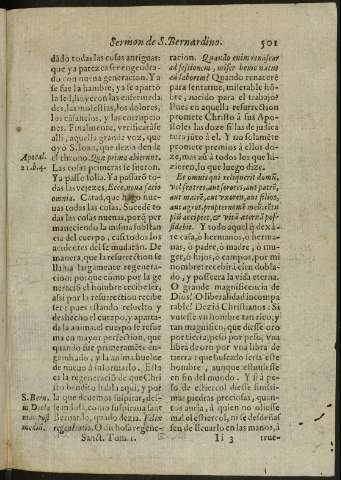 Sermon de S. Bernardino. 501
dado todas las cosas antiguas:
que ya parezca ser engendra-
do con nueua generacion. Ya
se fue la hambre, ya se apartò
la sed, huyeron las enfermeda
des, las molestias, los dolores,
los cãsancios, y las corrupcio
nes. Finalmente, verificarâse
alli, aquella grande voz, que
oyò S. Ioan, que dezia dende
el throno. Quæ prima abierunt.
Apocal.
21. d. 4.
Las cosas primeras se fueron.
Ya passarõ to-
das las vejezes, Ecce, noua facio
omnia. Catad, que hago nue-
uas todas las cosas. Succede to
das las cosas nueuas, porq̃ per
maneciendo la misma substan
cia del cuerpo, casi todos los
accidentes del se mudaràn. De
manera, que la resurrection se
llama largamẽte regenera-
cion: porque como por la ge
neraciõ el hombre recibe ser,
assi por la resurrection recibe
ser: pues estando resuelto y
deshecho el cuerpo, y aparta-
da la anima, el cuerpo se refor
ma en mayor perfection, que
quando fue primeramẽte en-
gendrado, y la anima buelue
de nueuo à informarlo. Esta
es la regeneraciõ de que Chri
sto bendito habla aqui, y por
la que deuemos suspirar, des-
S. Bern.
como suspiraua sant
Bernardo, quãdo dezia. Felix
regeneratio. O dichosa regene-
Sanct. Tom. 1.
racion. Quando enim renascar
ad sessionem, miser homo natus
ad laborem? Quando renacerè
para sentarme, miserable hõ-
bre, nacido para el trabajo?
Pues en aquella resurrection
promete Christo à sus Apo-
stoles las doze sillas de judica
tura jũto à el. Y no solamẽte
promete premios à ellos do-
ze, mas aũ à todos los que hi-
zieren, lo que luego dize.
Et omnis qui reliquerit domũ,
vel fratres, aut sorores, aut patrẽ,
aut matrẽ, aut vxorem, aut filios,
aut agros, propter nomẽ meũ, cẽtu
plũ accipiet, & vitã æternã pos-
sidebit. Y todo aquel q̃ dexà-
re casa, ò hermanos, ò herma-
nas, ò padre, ò madre, ò mu-
ger, ò hijos, ò campos, por mi
nombre: recebirà cien dobla-
do, y posseera la vida eterna.
O grande magnificencia de
Dios! O liberalidad incompa
rable! Dezid Christianos: Si
vuiesse vn hombre tan rico, y
tan magnifico, que diesse oro
por tierra, peso por peso, vna
libra de oro por vna libra de
tierra: que buscado seria este
hombre, aunque estuuiesse
en fin del mundo. Y si à pe-
so de estiercol diesse finissi-
mas piedras preciosas, quan-
tos auria, à quien no oliesse
mal el estiercol, ni se desdeñas
sen de lleuarlo en las manos, à
Ii 3 true-